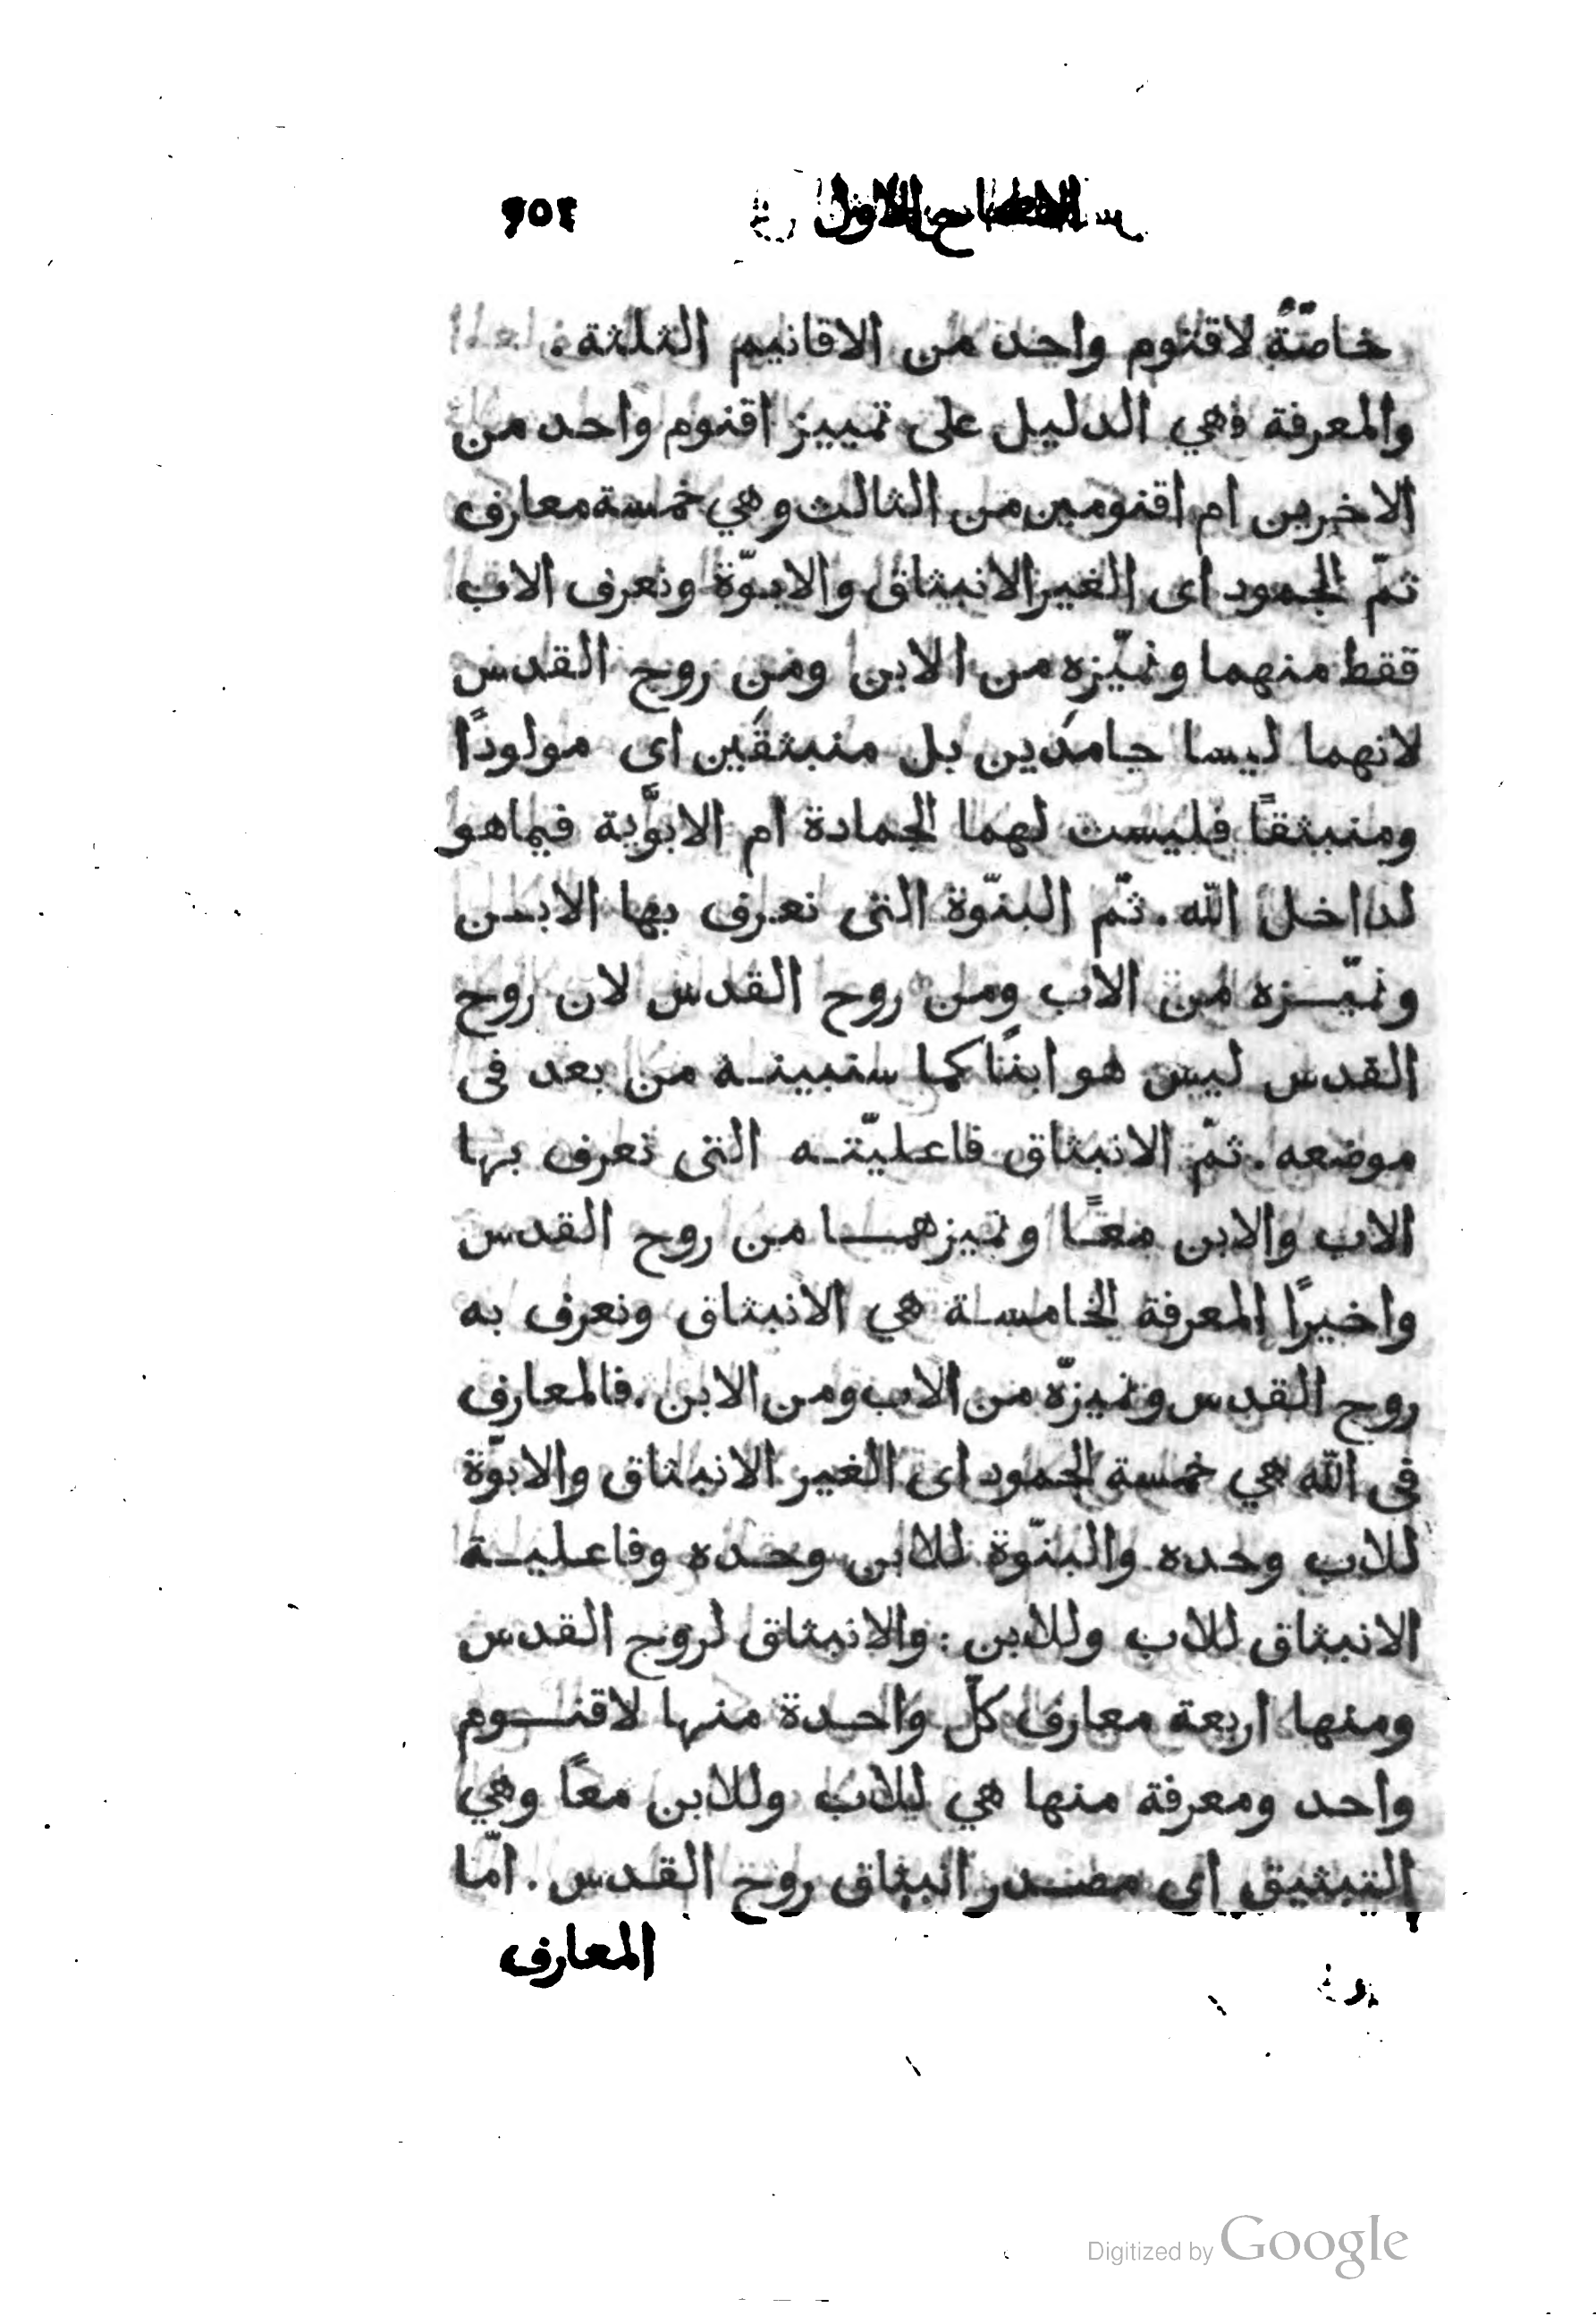 الاول
خاصّةً لاقنوم واحد من الاقانيم الثلثة.
والمعرفة وهي الدليل على تمييز اقنوم واحد من
الاخرين ام اقنومين من الثالث وهي خمسة معارف
ثمّ الجمود اى الغير الانبثاق والابوّة ونعرف الاب
فقط منهما ونميّزه من الابن ومن روح القدس
لانهما ليسا جامدَين بل منبثقَين اى مولودًا
ومنبثقًا فليست لهما الجمادة ام الابوَّية فيماهو
لداخل الله. ثمّ البنوّة التى نعرف بها الابن
ونميّزه من الاب ومن روح القدس لان روح
القدس ليس هو ابنًا كما سنبينه من بعد فى
موضعه. ثمّ الانبثاق فاعليّته التى نعرف بها
الاب والابن معًا ونميزهما من روح القدس
واخيرًا المعرفة الخامسة هي الانبثاق ونعرف به
روح القدس ونميزّه من الاب ومن الابن. فالمعارف
فى الله هي خمسة الجمود اى الغير الانبثاق والابوّة
للاب وحده والبنوّة للابن وحده وفاعلية
الانبثاق للاب وللابن. والانبثاق لروح القدس
ومنها اربعة معارف كلّ واحدة منها لاقنوم
واحد ومعرفة منها هي للاب وللابن معًا وهي
التبثيق اى مصدر انبثاق روح القدس. امّا
المعارف
Digitized by Google